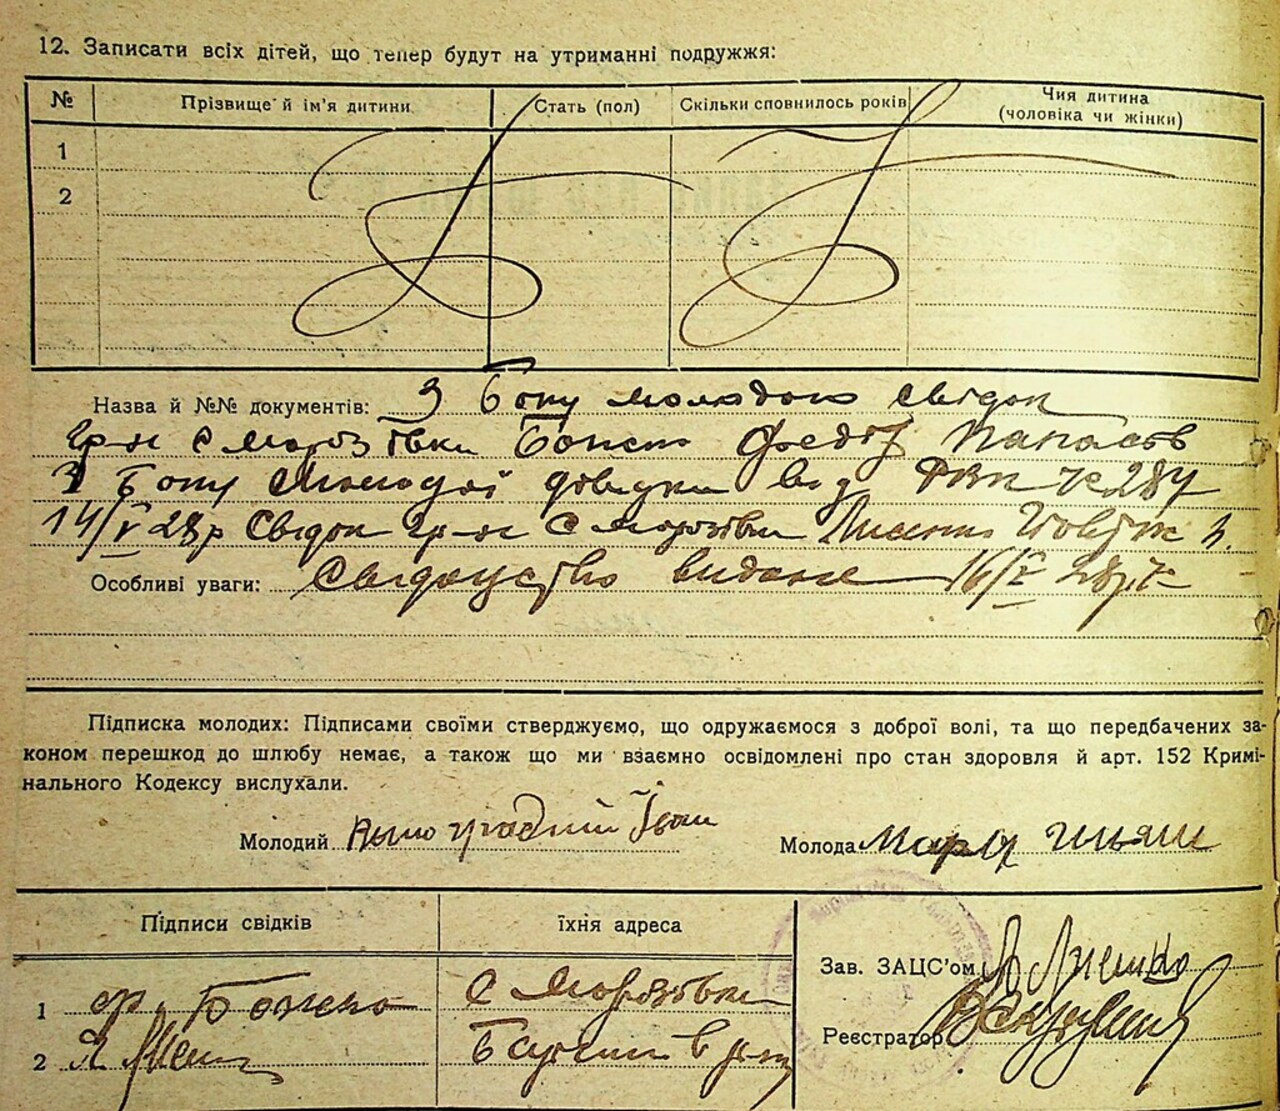 12. Записати всіх дітей, що тепер будут на утриманні подружжя:
№ Прізвище й ім'я дитини Стать (пол) Скільки сповнилось років Чия дитина (чоловіка чи жінки)
1
2
Назва й №№ документів: З боку молодого свідок
гр-н с Морозівки Федір
З боку Молодої довідка від № 287
14/V 28р Свідок гр-н с Морозівки
Особливі уваги: Свідоцтво видане 16/V 28р.
Підписка молодих: Підписами своїми стверджуємо, що одружаємося з доброї волі, та що передбачених за-
коном перешкод до шлюбу немає, а також що ми взаємно освідомлені про стан здоровля й арт. 152 Кримі-
нального Кодексу вислухали.
Молодий Іван Молода
Підписи свідків їхня адреса
Зав. ЗАЦС'ом
1 ф. с Морозівка
Реєстратор
2